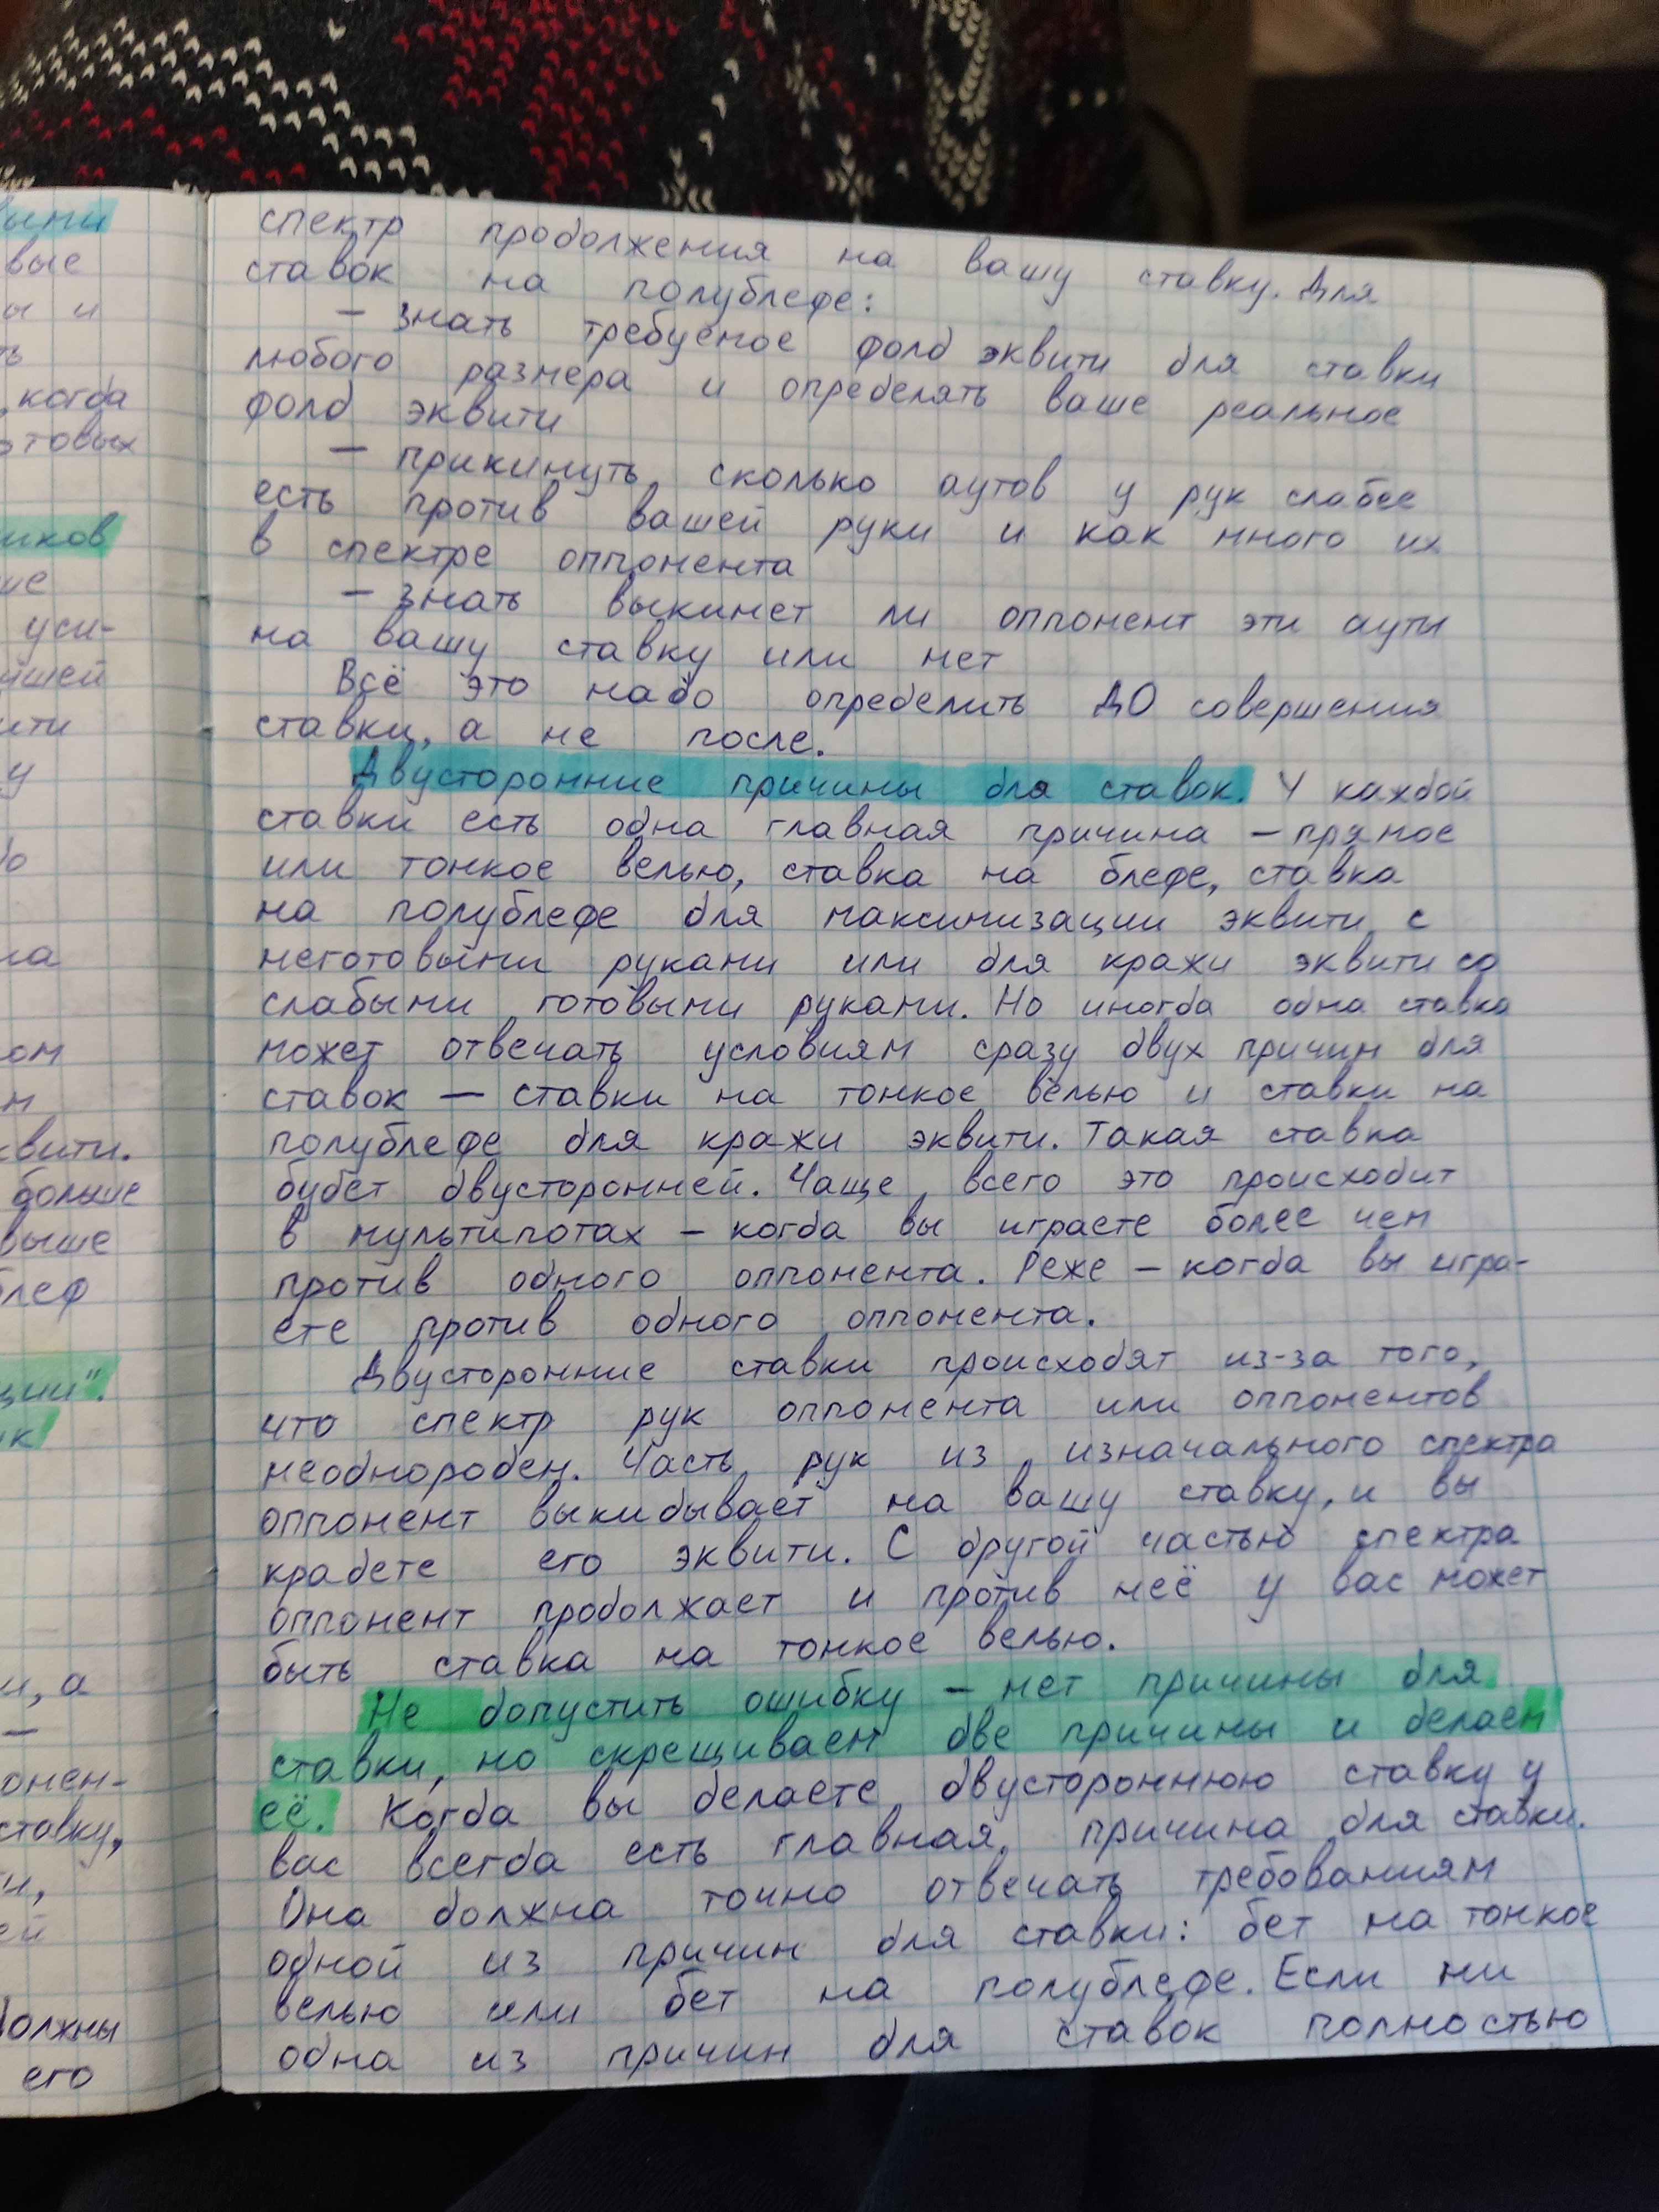 выми
вые
ы и
ть
, когда
отовых
иков
ие
уси-
йшей
ити
у
ю
на
ом
м
квити.
больше
выше
леф
ции".
ик
и, а
—
онен-
ставку,
и,
ей
должны
его
спектр продолжения на вашу ставку. Для
ставок на полублефе:
— знать требуемое фолд эквити для ставки
любого размера и определять ваше реальное
фолд эквити
— прикинуть сколько аутов у рук слабее
есть против вашей руки и как много их
в спектре оппонента
— знать выкинет ли оппонент эти ауты
на вашу ставку или нет
Всё это надо определить ДО совершения
ставки, а не после.
Двусторонние причины для ставок. У каждой
ставки есть одна главная причина — прямое
или тонкое велью, ставка на блефе, ставка
на полублефе для максимизации эквити с
неготовыми руками или для кражи эквити со
слабыми готовыми руками. Но иногда одна ставка
может отвечать условиям сразу двух причин для
ставок — ставки на тонкое велью и ставки на
полублефе для кражи эквити. Такая ставка
будет двусторонней. Чаще всего это происходит
в мультипотах — когда вы играете более чем
против одного оппонента. Реже — когда вы игра-
ете против одного оппонента.
Двусторонние ставки происходят из-за того,
что спектр рук оппонента или оппонентов
необнороден. Часть рук из изначального спектра
оппонент выкидывает на вашу ставку, и вы
крадете его эквити. С другой частью спектра
оппонент продолжает и против неё у вас может
быть ставка на тонкое велью.
Не допустить ошибку — нет причины для
ставки, но скрещиваем две причины и делаем
её. Когда вы делаете двустороннюю ставку у
вас всегда есть главная причина для ставки.
Она должна точно отвечать требованиям
одной из причин для ставки: бет на тонкое
велью или бет на полублефе. Если ни
одна из причин для ставок полностью